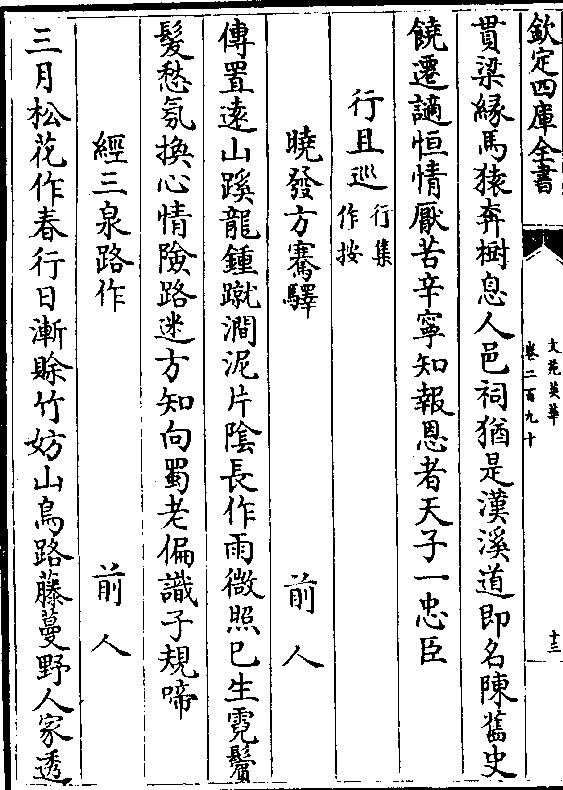 欽定四庫全書
文苑英華
卷二百九十
十三
貫梁緣馬猿奔樹息人邑祠猶是漢溪道即名陳舊史
饒遷謫恒情厭苦辛寧知報恩者天子一忠臣
行且巡行集作按
曉發方騫驛 前人
傳置遠山蹊龍鍾蹴澗泥片陰長作雨微照已生霓鬢
髮愁氛換心情險路迷方知向蜀老偏識子規啼
經三泉路作 前人
三月松花作春行日漸賒竹妨山鳥路藤蔓野人家透